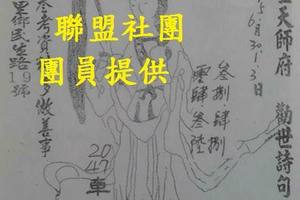 聯盟社團
團員提供
天師府 勸世詩句
6月30.1.3日
叁捌.肆捌
零肆叁陸
20
47車
参考資料多做善事
里鄉民生路19號